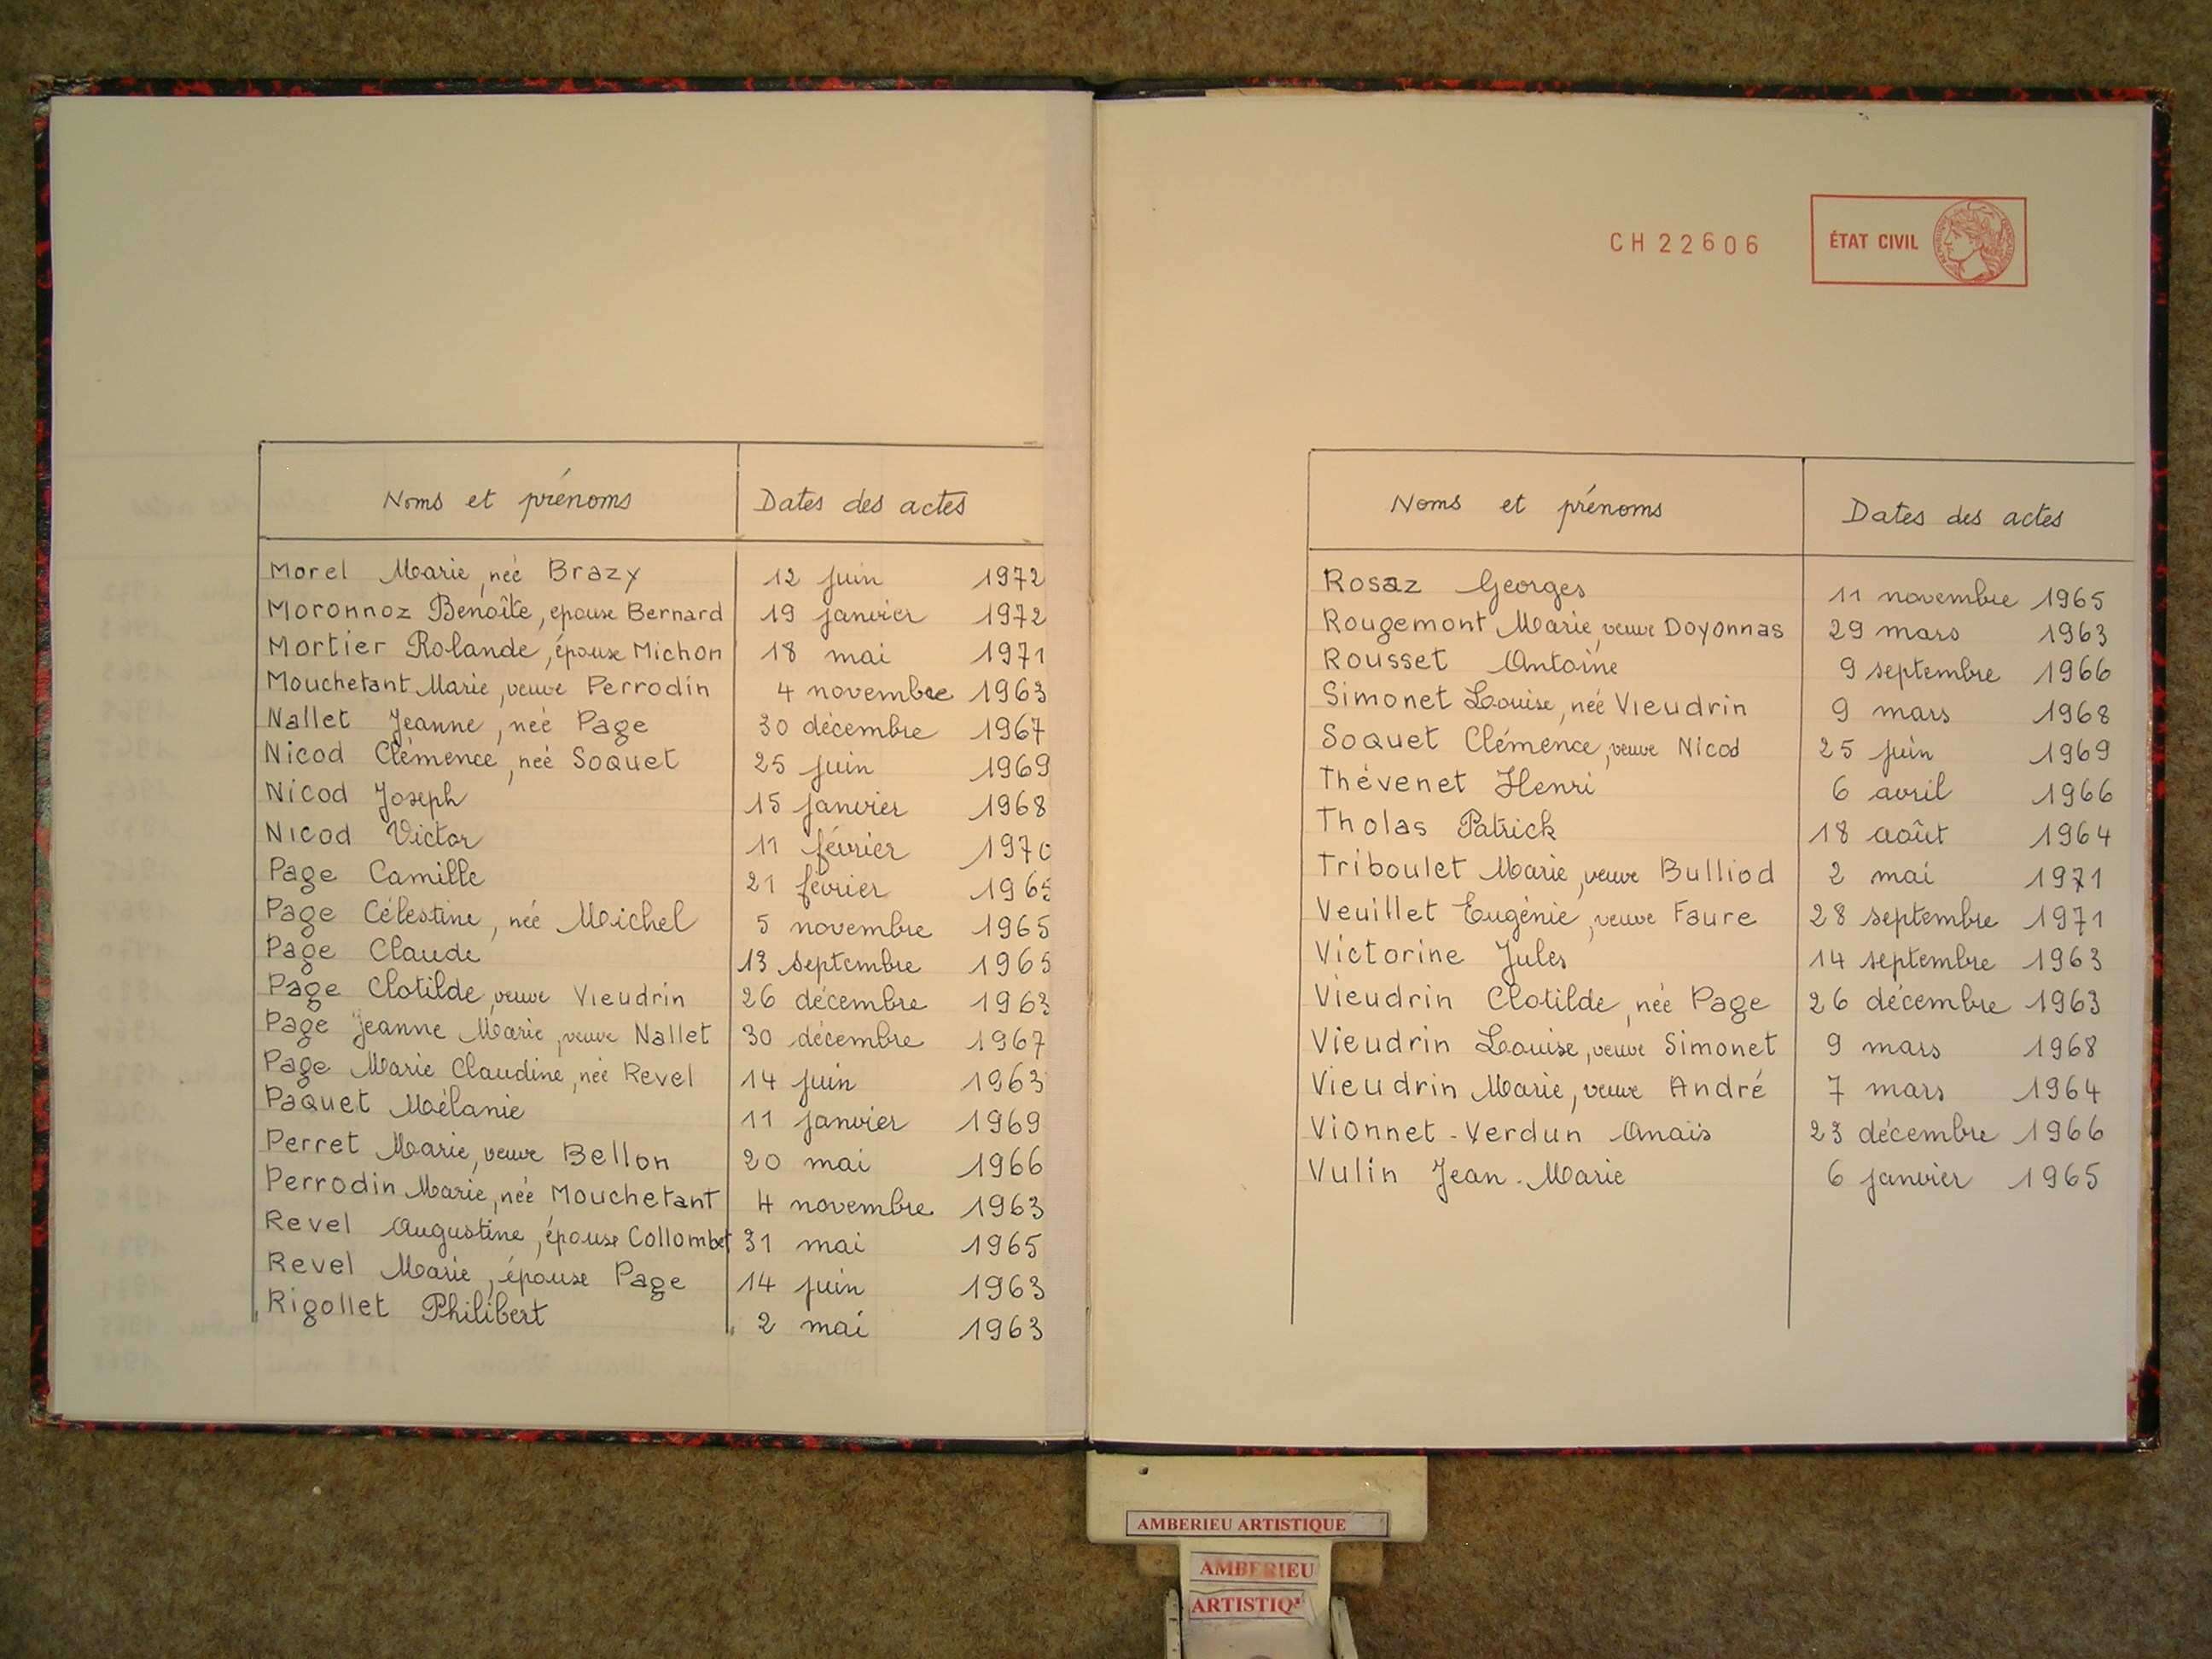 Noms et prénoms Dates des actes
Morel Marie, née Brazy 12 juin 1972
Moronnoz Benoîte, epouse Bernard 19 janvier 1972
Mortier Rolande, épouse Michon 18 mai 1971
Mouchetant Marie, veuve Perrodin 4 novembre 1963
Nallet Jeanne, neé Page 30 décembre 1967
Nicod Clémence, neé Soquet 25 juin 1969
Nicod Joseph 15 janvier 1968
Nicod Victor 11 février 1970
Page Camille 21 février 1965
Page Célestine, née Michel 5 novembre 1965
Page Claude 13 septembre 1965
Page Clotilde, veuve Vieudrin 26 décembre 1963
Page Jeanne Marie, veuve Nallet 30 décembre 1967
Page Marie Claudine, née Revel 14 juin 1963
Paquet Mélanie 11 janvier 1969
Perret Marie, veuve Bellon 20 mai 1966
Perrodin Marie, née Mouchetant 4 novembre 1963
Revel Augustine, épouse Collombet 31 mai 1965
Revel Marie, épouse Page 14 juin 1963
Rigollet Philibert 2 mai 1963
CH22606 ÉTAT CIVIL
Noms et prénoms Dates des actes
Rosaz Georges 11 novembre 1965
Rougemont Marie, veuve Doyonnas 29 mars 1963
Rousset Antoine 9 septembre 1966
Simonet Louise, neé Vieudrin 9 mars 1968
Soquet Clémence, veuve Nicod 25 juin 1969
Thévenet Henri 6 avril 1966
Tholas Patrick 18 août 1964
Triboulet Marie, veuve Bulliod 2 mai 1971
Veuillet Eugénie, veuve Faure 28 septembre 1971
Victorine Jules 14 septembre 1963
Vieudrin Clotilde, née Page 26 décembre 1963
Vieudrin Louise, veuve Simonet 9 mars 1968
Vieudrin Marie, veuve André 7 mars 1964
Vionnet-Verdun Anaïs 23 décembre 1966
Vulin Jean-Marie 6 janvier 1965
AMBERIEU ARTISTIQUE
AMBERIEU
ARTISTIQ